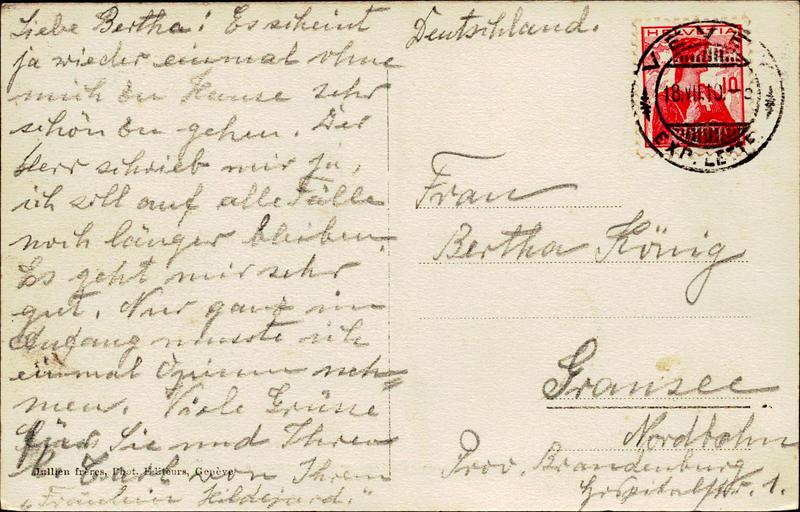 Liebe Bertha! Es scheint
ja wieder einmal ohne
mich zu Hause sehr
schön zu gehen. Der
Herr schrieb mir ja,
ich soll auf alle Fälle
noch länger bleiben.
Es geht mir sehr
gut. Nur ganz im
Anfang musste ich
einmal Opium neh=
men. Viele Grüsse
für Sie und Ihren
Carl von Ihrem
"Fräulein Hildegard."
Jullien frères, Phot. Editeurs, Genève
Deutschland.
HELVETIA
10
VEVEY
18.VII.10
EXP. LETTR.
Frau
Bertha König
Gransee
Nordbahn
Prov. Brandenburg
Hospitalstr. 1.